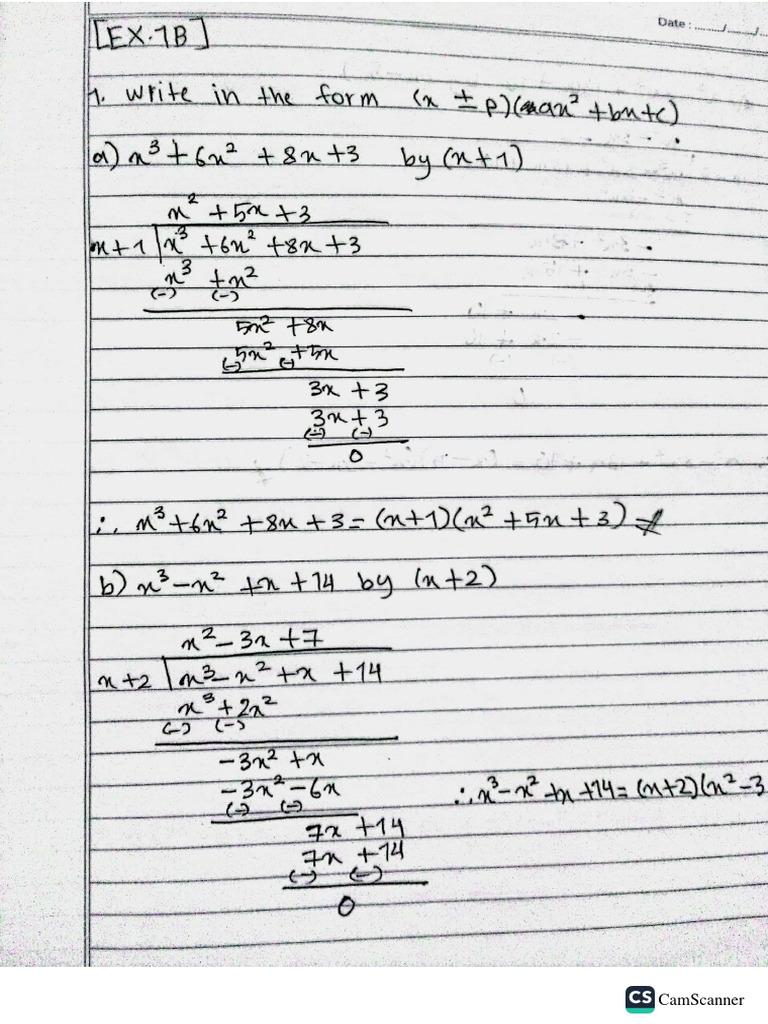 Date : ......../......./...
[EX.7B]
1. write in the form (x ± p)(ax² + bx + c)
a) x³ + 6x² + 8x + 3 by (x+1)
x² + 5x + 3
x+1 | x³ + 6x² + 8x + 3
x³ + x²
(-) (-)
5x² + 8x
5x² + 5x
(-) (-)
3x + 3
3x + 3
(-) (-)
0
∴ x³ + 6x² + 8x + 3 = (x+1)(x² + 5x + 3)
b) x³ - x² + x + 14 by (x+2)
x² - 3x + 7
x+2 | x³ - x² + x + 14
x³ + 2x²
(-) (-)
-3x² + x
-3x² - 6x
(-) (-)
∴ x³ - x² + x + 14 = (x+2)(x² - 3
7x + 14
7x + 14
(-) (-)
0
CS CamScanner